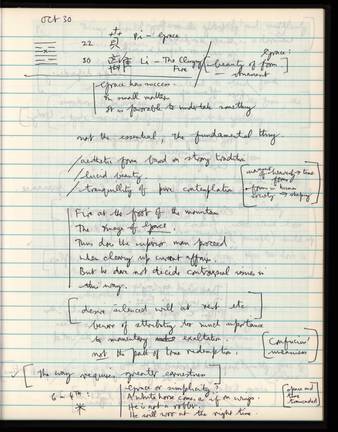 Oct 30
22 賁 Pi - Grace
30 離 Li - The Clinging Fire
Grace:
[beauty of form
- ornament]
Grace has success.
In small matters
It is favorable to undertake something
not the essential, the fundamental thing.
/ aesthetic form based on strong tradition
/ lucid beauty
/ tranquillity of pure contemplation
Fire at the foot of the mountain
The image of Grace.
Thus does the superior man proceed
when clearing up current affairs.
But he does not decide controversial issues in
this way.
[desire silenced will at rest etc
beware of attributing too much importance
to momentary exaltation.
not the path of true redemption.
[Confucius'
uneasiness]
[The way requires greater earnestness]
6 in 4th:
Grace or simplicity?
A white horse comes as if on wings.
He is not a robber.
He will woo at the right time.